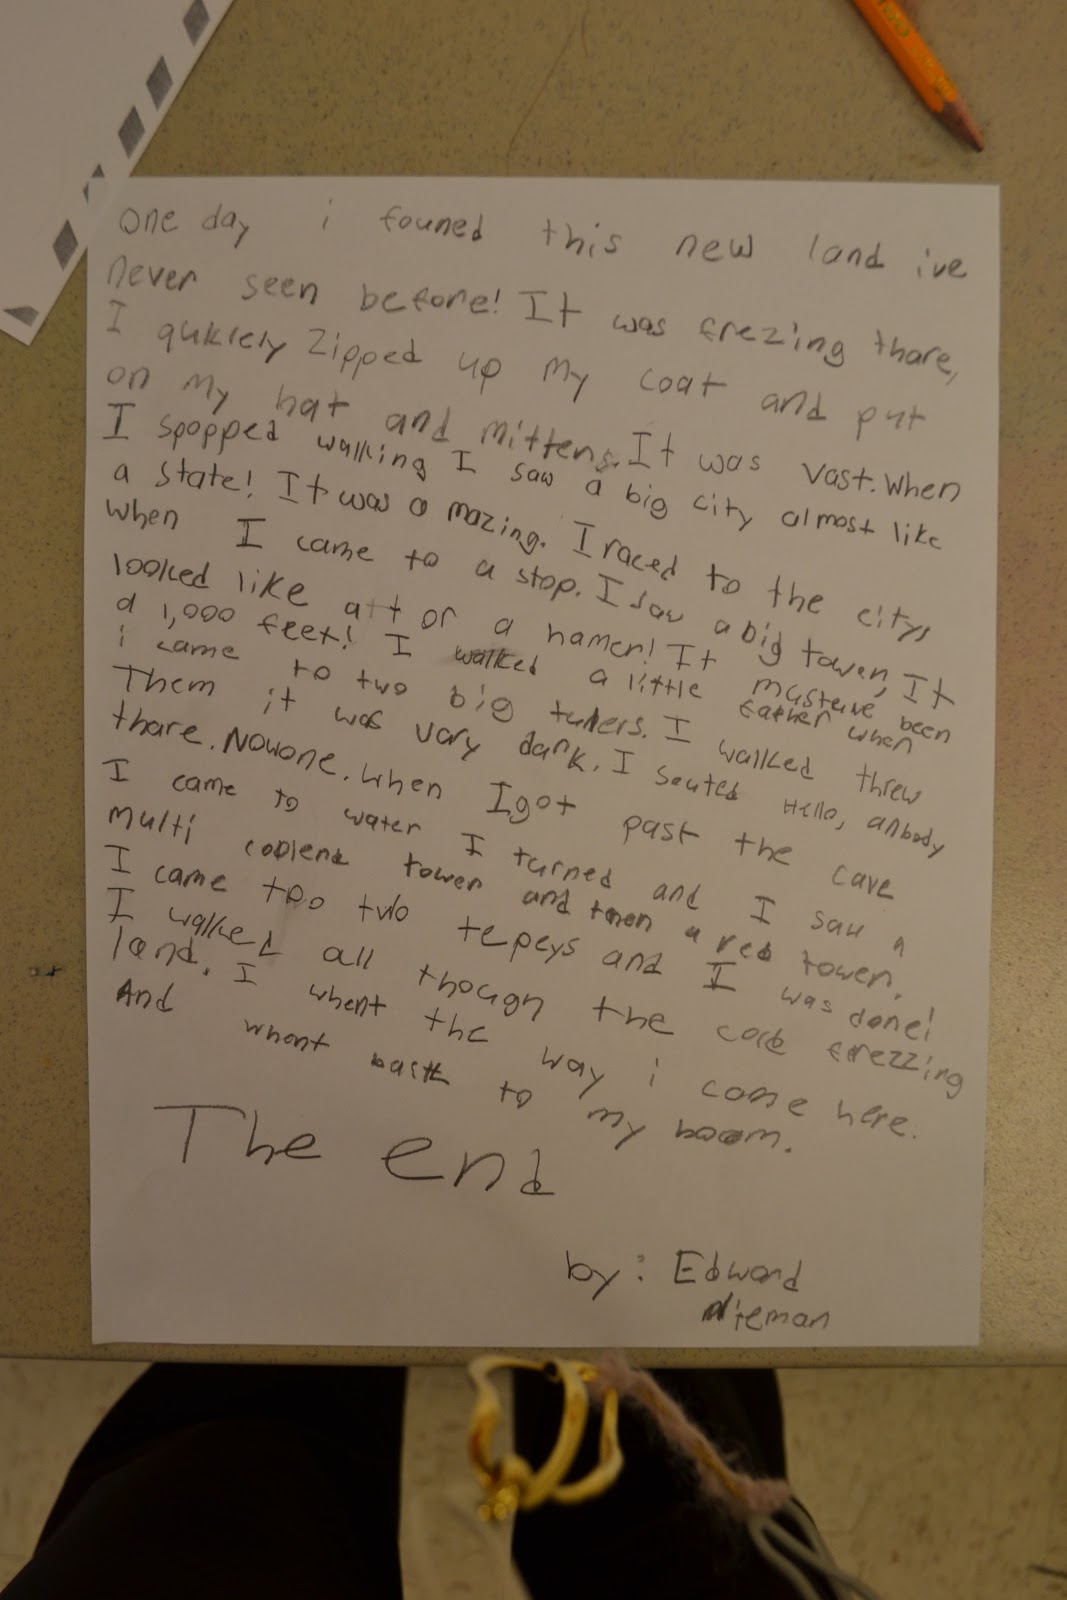 one day i founed this new land ive
never seen before! It was frezing thare,
I qukiely zipped up my coat and put
on my hat and mittens. It was vast. When
I spopped walking I saw a big city almost like
a state! It was a mazing. I raced to the citys
when I came to a stop. I saw a big tower, It
looked like att or a hamer! It musteve been
a 1,000 feet! I walked a little farther when
i came to two big tullers. I walked threw
Them it was vary dark. I souted Hello, anbody
thare. Nowone. When I got past the cave
I came to water I turned and I saw a
multi coolerd tower and then a red tower.
I came too two tepeys and I was done!
I walked all though the cold frezzing
land. I whent the way i come here.
And whant back to my boom.
The end
by: Edward
Niteman